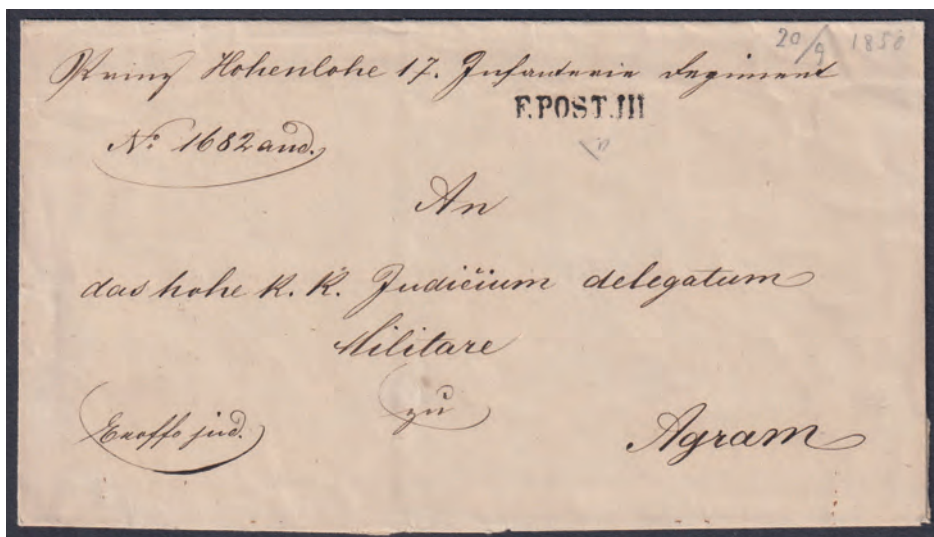 20/9 1850
Prinz Hohenlohe 17. Infanterie Regiment
F.POST.III
No: 1682 aud.
An
das hohe K. K. Judicium delegatum
Militare
zu
Exoffo jud.
Agram